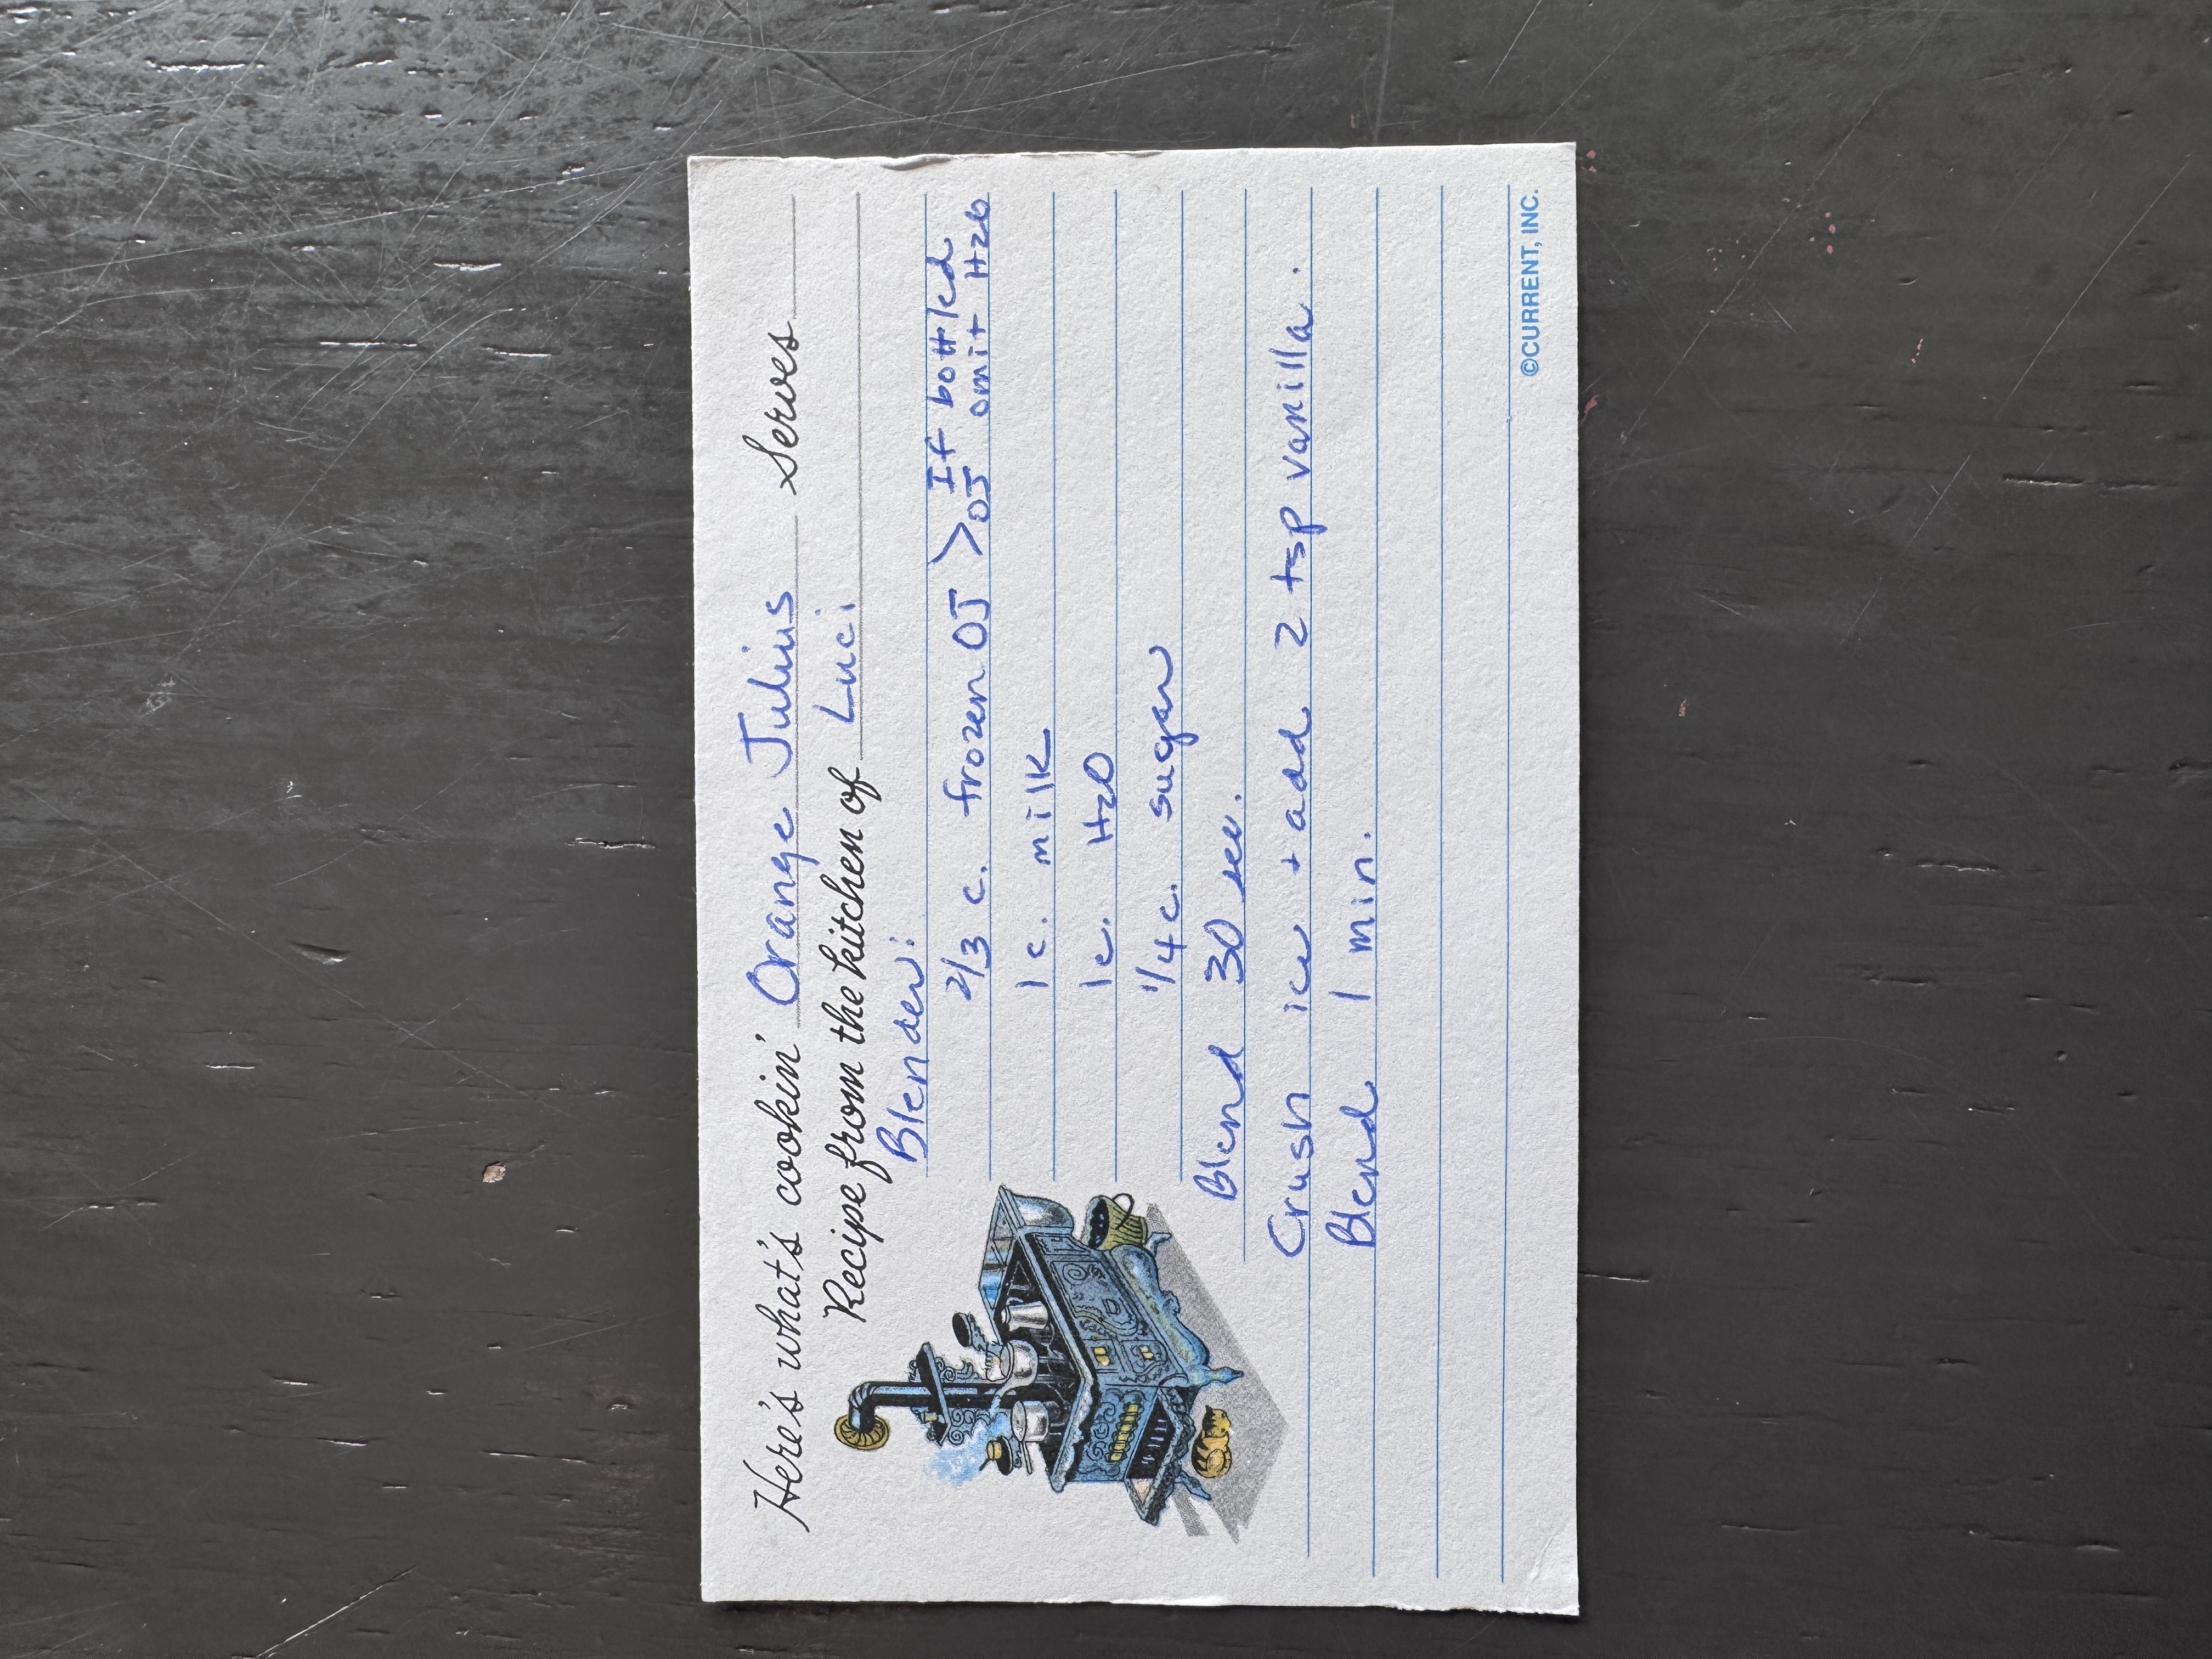 Here's what's cookin' Orange Julius Serves
Recipe from the kitchen of Luci
Blender:
2/3 c. frozen OJ > If bottled
OJ omit H2O
1 c. milk
1 c. H2O
1/4 c. sugar
Blend 30 sec.
Crush ice + add 2 tsp vanilla.
Blend 1 min.
©CURRENT, INC.